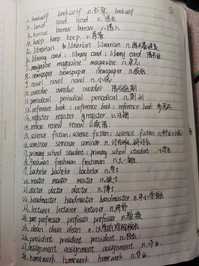 bookself bookself n.书架 bookself
lend lend lend v.借出
borrow borrow borrow v.借入
keep keep keep v.保存
librarian librarian librarian n.图书管理员
library card : library card : library card 借书证
magazine magazine magazine n.杂志
newspaper newspaper newspaper n.报纸
novel novel novel n.小说
overdue overdue overdue 过期
periodical periodical periodical n.期刊
reference book : reference book : reference book
register register gregister v.注册
renew renew renew v.续借
science fiction : science fiction : science fiction n.科幻小说
seminar seminar seminar n.
primary school student : primary school student n.小学生
freshman freshman freshman n.大一新生
bachelor bachelor bachelor n.学士
master master master n.硕士
doctor doctor doctor n.博士
headmaster headmaster headmaster n.中小学校长
lecturer lecturer lecturer n.讲师
professor professor professor n.教授
dean dean dean n.
president president president n.
assignment assignment assignment n.作业
homework homework homework n.作业